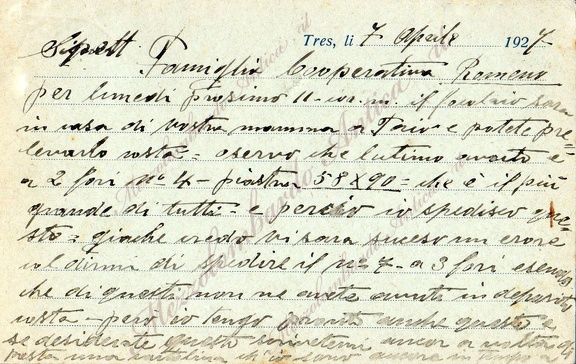 Tres, li 7 Aprile 1927
Spett Famiglia Cooperativa Romeno
per lunedi prossimo 11 cor. m. il focolaio sara
in casa di vostra mamma a Taio e potete pre=
levarlo costà = osservo che lultimo avuto è
a 2 fori nº 4 – piastra 58 X 90 = che è il più
grande di tutti = e perciò io spedisco que=
sto = giache credo vi sara suceso un erore
col dirmi di spedire il nº 7 – a 3 fori
che di questi non ne avete avuti in deposito
costa – pero io tengo pronto anche questo e
se desiderate questo scrivetemi ancor a volta di